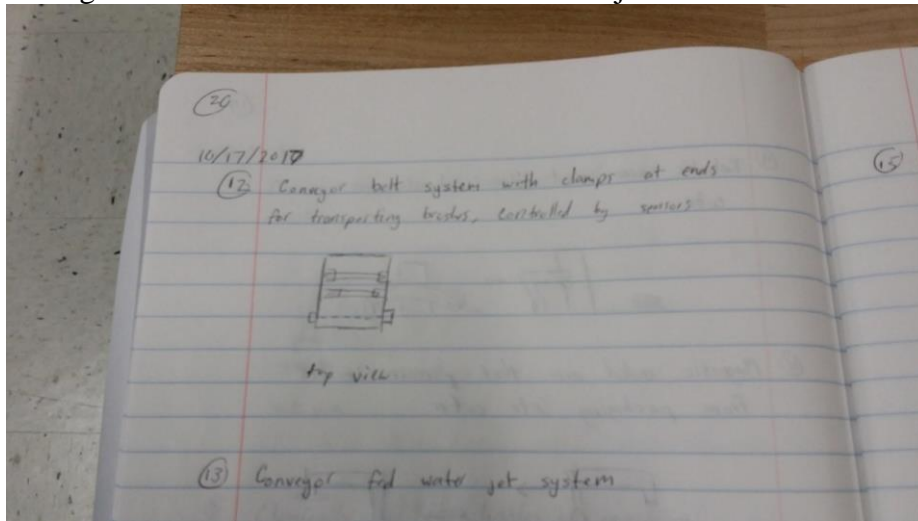 20
10/17/2017
12 Conveyor belt system with clamps at ends
for transporting brushes, controlled by sensors
top view
13 Conveyor fed water jet system
15